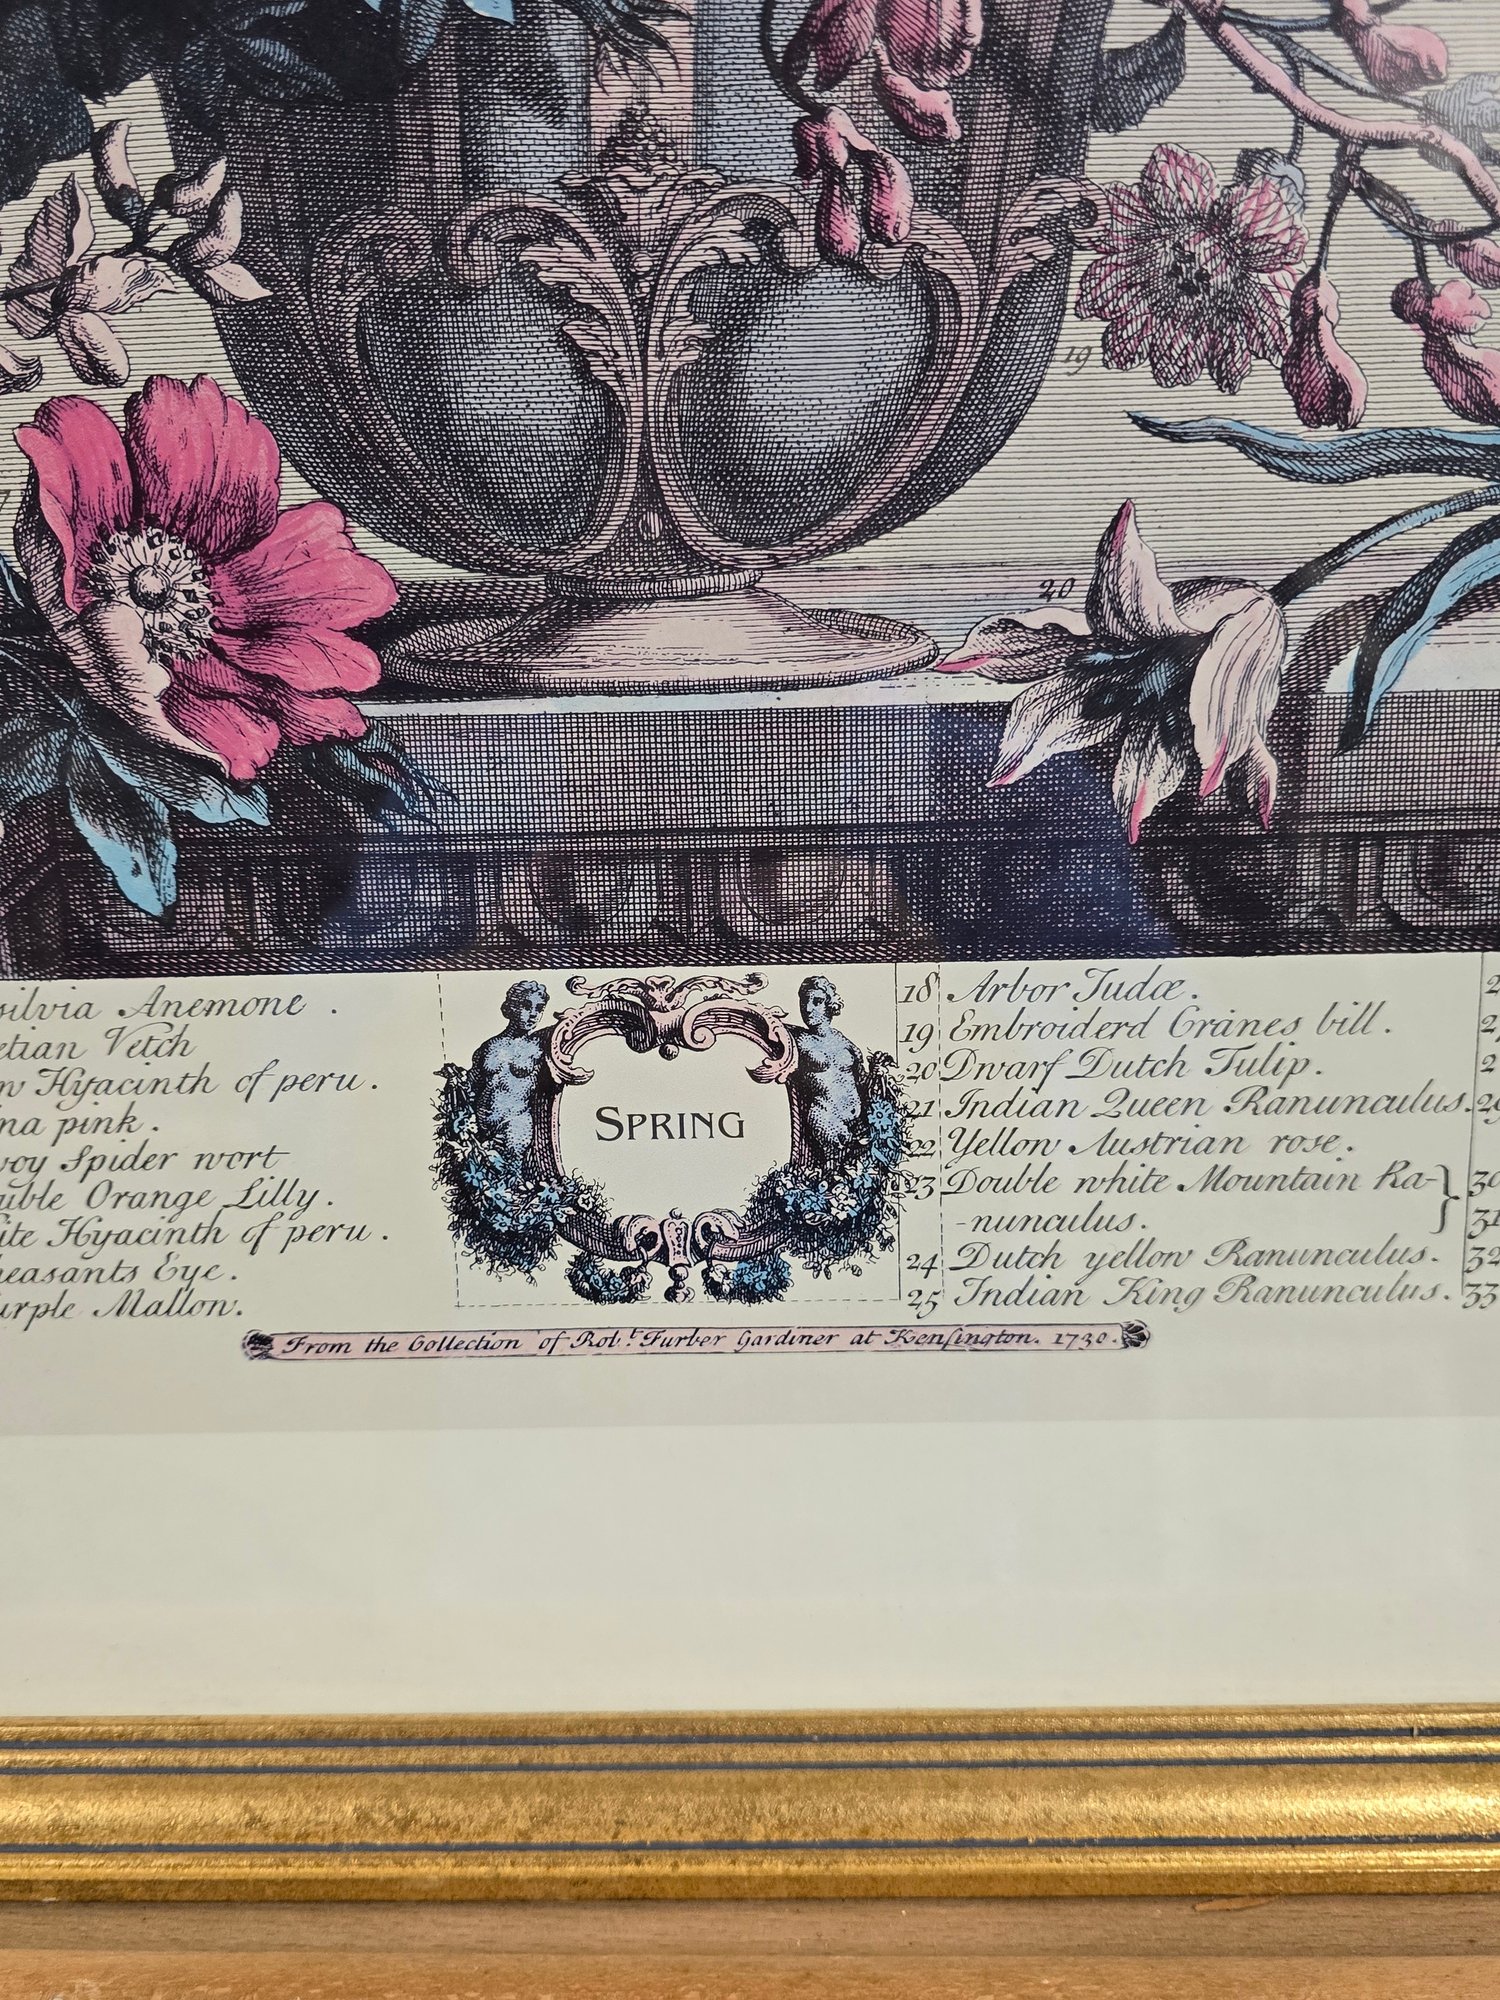 19
20
Anemone .
Vetch
Hyacinth of peru .
pink .
Spider wort
Orange Lilly .
Hyacinth of peru .
Eye .
Mallow.
SPRING
18 Arbor Judæ .
19 Embroiderd Cranes bill .
20 Dwarf Dutch Tulip .
21 Indian Queen Ranunculus.
22 Yellow Austrian rose .
23 Double white Mountain Ra-
-nunculus .
24 Dutch yellow Ranunculus .
25 Indian King Ranunculus .
30
31
32
33
From the Collection of Rob.t Furber Gardiner at Kenſington. 1730.